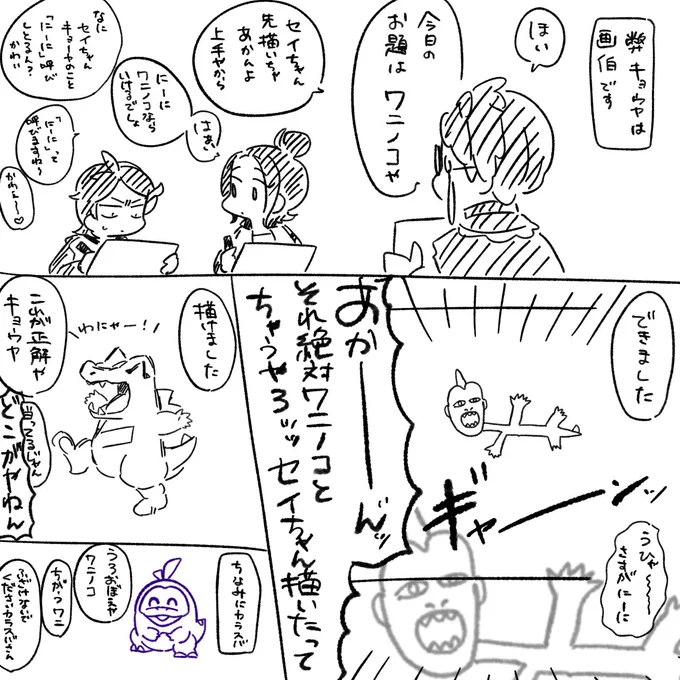 弊キョウヤは
画伯です
ほい
今日の
お題は ワニノコや
セイちゃん
先描いちゃ
あかんよ
上手やから
はぁい
にーに
ワニノコなら
いけるでしょ
なに
セイちゃん
キョーヤのこと
「にーに」呼び
しとるん?
かわい
「にーに」って
呼びますね〜
かわよ〜♡
できました
ギャーーンッ
うひゃ〜〜〜
さすがにーに
あかーーんッ
それ絶対ワニノコと
ちゃうやろッッセイちゃん描いたって
描けました
わにゃー!
これが正解や
キョーヤ
当ってるじゃん
どこがやねん
ちなみにカラスバ
うろおぼえや
ワニノコ
ちがうワニ
ふざけないで
くださいカラスバさん